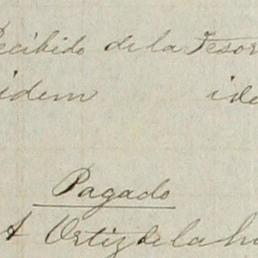 Recibido de la Tesor
idem ide
Pagado
A Ortiz de la hu